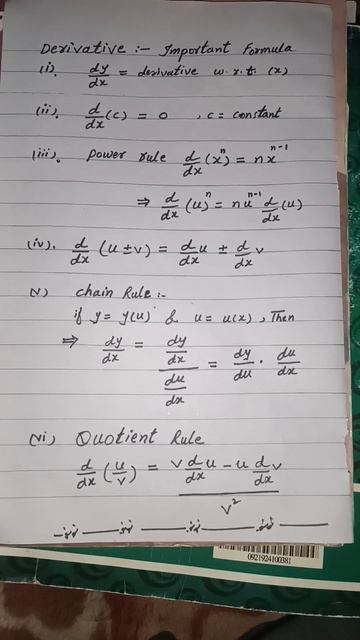 Derivative :- Important Formula
(i). dy/dx = derivative w.r.t. (x)
(ii). d/dx (c) = 0 , c = constant
(iii). Power rule d/dx (x^n) = nx^(n-1)
⇒ d/dx (u)^n = nu^(n-1) d/dx (u)
(iv). d/dx (u ± v) = d/dx u ± d/dx v
v) chain Rule :-
if y = y(u) & u = u(x), Then
⇒ dy/dx = (dy/dx)/(du/dx) = dy/du · du/dx
(vi) Quotient Rule
d/dx (u/v) = (v d/dx u - u d/dx v)/v²
0921924100381